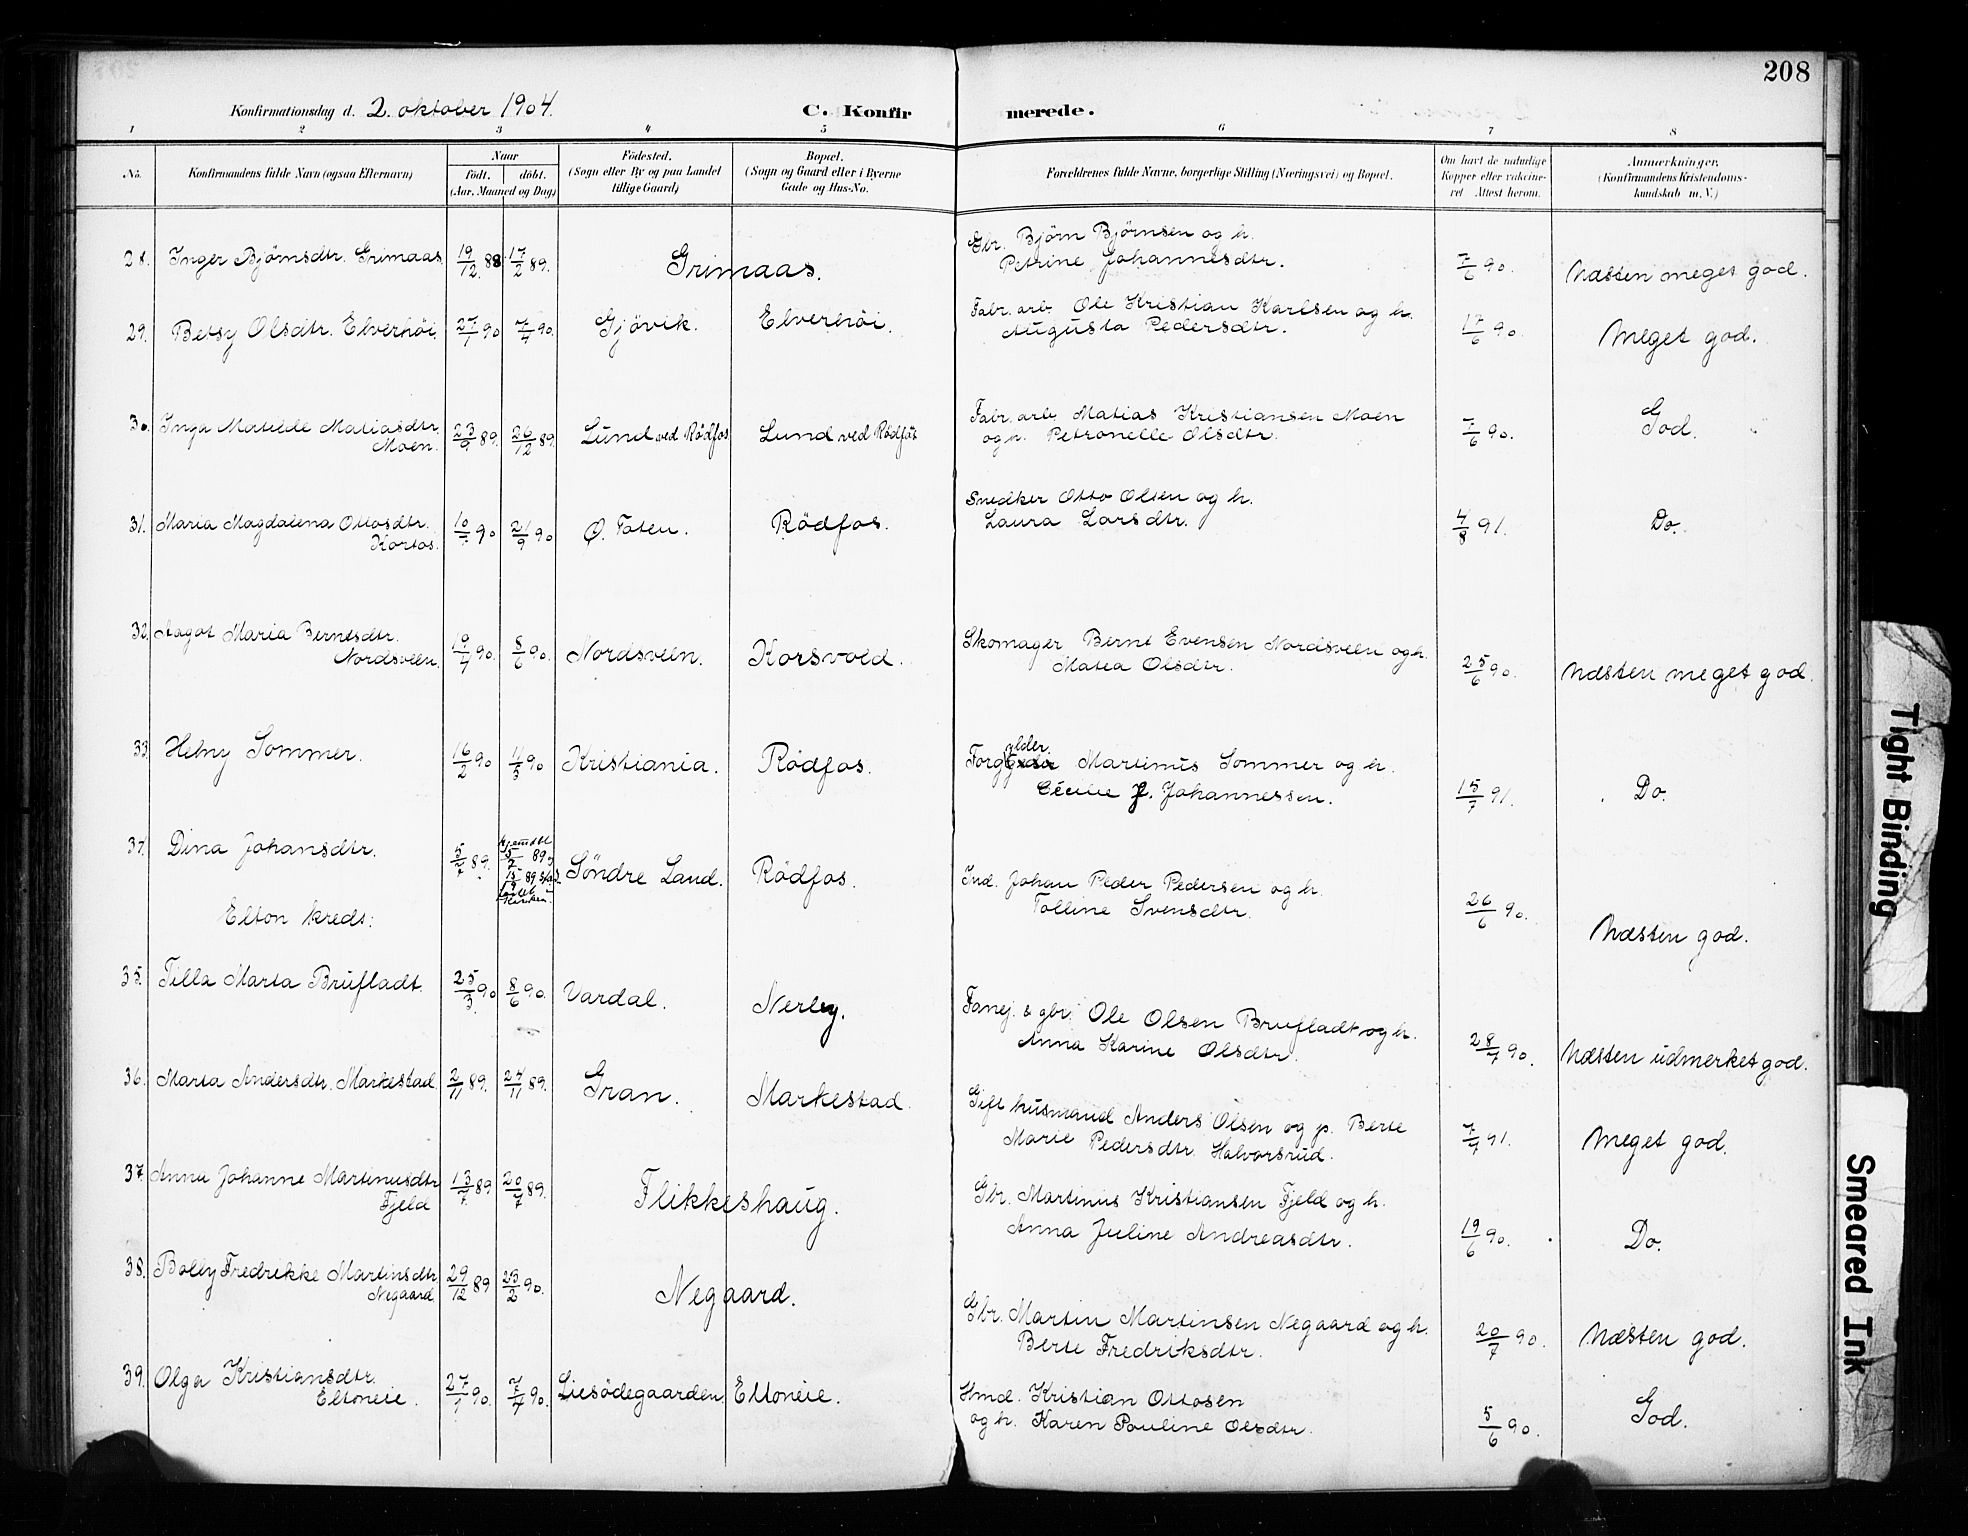 208
Konfirmationsdag d. 2. oktober 1904. C. Konfirmerede.
1 2 3 4 5 6 7 8
No. Konfirmandens fulde Navn (ogsaa Efternavn) Naar født. døbt. (Aar, Maaned og Dag) Fødested. (Sogn eller By og paa Landet tillige Gaard) Bopæl. (Sogn og Gaard eller i Byerne Gade og Hus-No. Forældrenes fulde Navne, borgerlige Stilling (Næringsvei) og Bopæl. Om havt de naturlige Kopper eller vaccineret Attest herom. Anmærkninger. (Konfirmandens Kristendomskundskab m. V.)
28. Inger Bjørnsdtr. Grimaas 19/12 88 17/2 89. Grimaas. Gbr. Bjørn Bjørnsen og h. 7/6 90. Næsten meget god.
Petrine Johannesdtr.
29. Betsy Olsdtr. Elverhöi. 27/1 90 7/4 90. Gjövik. Elverhöi. Fabr. arb. Ole Kristian Karlsen og h. 17/6 90. Meget god.
Augusta Pedersdtr.
30. Inga Matilde Matiasdtr. 23/9 89. 26/12 89. Lund ved Rödfos Lund ved Rödfos Fabr. arb. Matias Kristiansen Moen 7/6 90. God.
Moen. og h. Petronelle Olsdtr.
31. Maria Magdalena Ottosdtr. 10/7 90 21/9 90 Ø. Toten. Rödfos. Snedker Otto Olsen og h. 4/8 91. Do.
Laura Larsdtr.
32. Aagot Maria Berntsdtr. 19/4 90. 8/6 90. Nordsveen. Korsvold. Skomager Bernt Evensen Nordsveen og h. 25/6 90. Næsten meget god.
Nordsveen. Matea Olsdtr.
33. Helny Sommer. 16/2 90 4/5 90 Kristiania. Rödfos. Forgylder Martinus Sommer og h. 15/7 91. Do.
Cecilie J. Johannessen.
34. Dina Johansdtr. 5/7 89. hjemdbt 5/7 89 15/9 89 Söndre Land. Rödfos. Ind. Johan Peder Pedersen og h. 26/6 90. Næsten god.
Tolline Svensdtr.
Elton kreds:
35. Tilla Marta Brufladt. 25/3 90 8/6 90. Vardal. Nerby. & gbr. Ole Olsen Brufladt og h. 28/7 90. Næsten udmerket god.
Anna Karine Olsdtr.
36. Marta Andersdtr. Markestad. 2/11 89. 24/11 89. Gran. Markestad. Gift husmand Anders Olsen og p. Berte 7/7 91. Meget god.
Marie Pedersdtr. Halvorsrud.
37. Anna Johanne Martinusdtr. 13/7 89 20/7 89. Flikkeshaug. Gbr. Martinus Kristiansen Fjeld og h. 19/6 90. Do.
Fjeld Anna Juline Andreasdtr.
38. Bolly Fredrikke Martinsdtr. 29/12 89 23/2 90. Negaard. Gbr. Martin Martinsen Negaard og h. 20/7 90. Næsten god.
Negaard Berte Fredriksdtr.
39. Olga Kristiansdtr. 27/1 90. 7/4 90. Liesödegaarden. Eltoneie. Hmd. Kristian Ottosen 5/6 90. God.
Eltoneie. og h. Karen Pauline Olsdtr.
Tight Binding
Smeared Ink